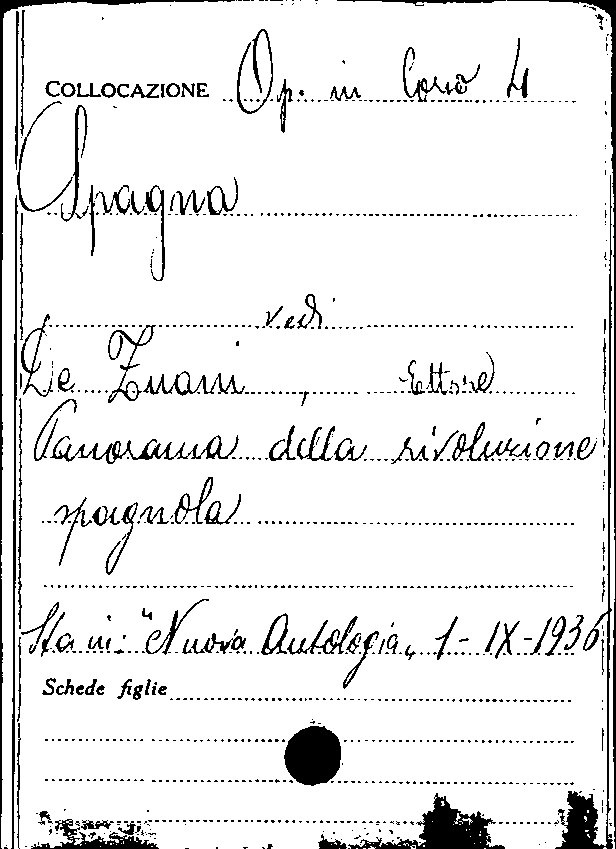 COLLOCAZIONE Op. in Corso 4
Spagna
vedi
De Zuani, Ettore
Panorama della rivoluzione
spagnola
Sta in: "Nuova Antologia" 1-IX-1936
Schede figlie